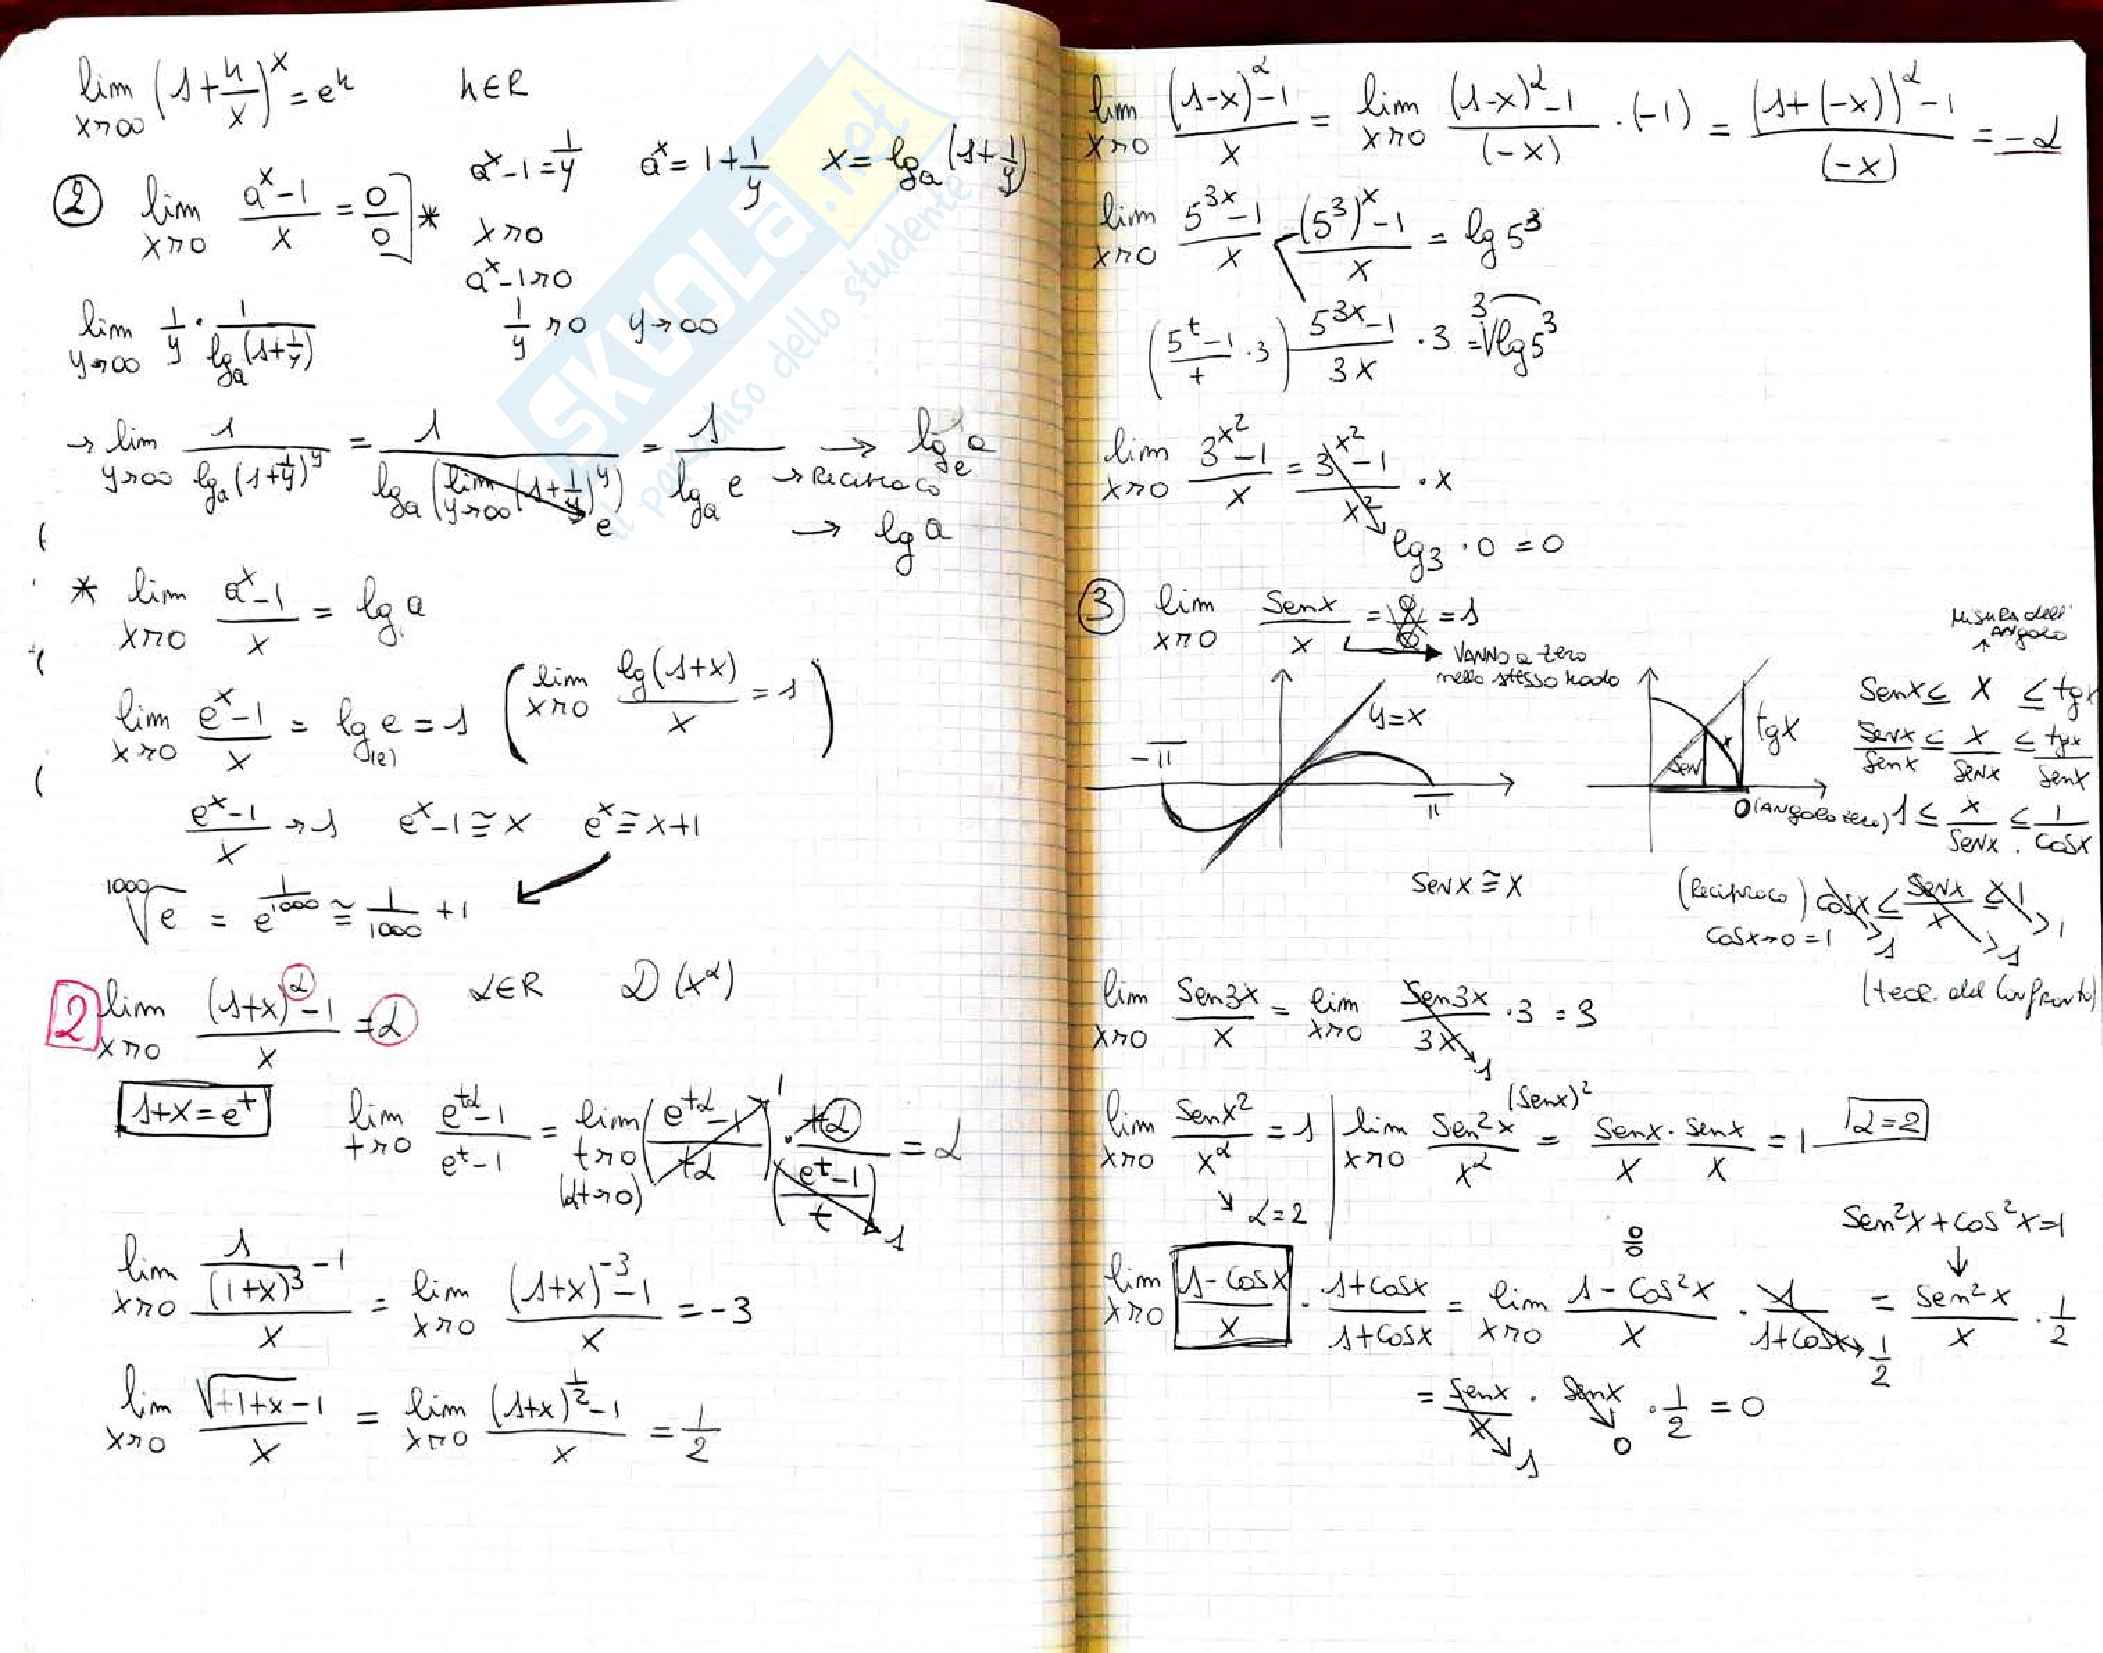 lim x→∞ (1+h/x)^x = e^h   h∈R
a^x-1=1/y   a^x=1+1/y   x=lg_a(1+1/y)
② lim x→0 (a^x-1)/x = 0/0 ] *   x→0
a^x-1→0
lim y→∞ 1/y · 1/lg_a(1+1/y)   1/y→0   y→∞
→ lim y→∞ 1/lg_a(1+1/y)^y = 1/lg_a(lim y→∞ (1+1/y)^y) → e = 1/lg_a e → lg_e a
→ Reciproco
→ lg a
* lim x→0 (a^x-1)/x = lg a
lim x→0 (e^x-1)/x = lg(e) e = 1   (lim x→0 lg(1+x)/x = 1)
(e^x-1)/x → 1   e^x-1≅x   e^x≅x+1
1000√e = e^(1/1000) ≅ 1/1000 +1
2 lim x→0 ((1+x)^α-1)/x = α   α∈R   D(x^α)
1+x=e^t   lim t→0 (e^(tα)-1)/(e^t-1) = lim t→0 (αt→0) ((e^(tα)-1)/(tα)) → 1 · tα/((e^t-1)/t) → 1 = α
lim x→0 (1/(1+x)^3 -1)/x = lim x→0 ((1+x)^-3 -1)/x = -3
lim x→0 (√+1+x -1)/x = lim x→0 ((1+x)^(1/2)-1)/x = 1/2
lim x→0 ((1-x)^α-1)/x = lim x→0 ((1-x)^α-1)/(-x) ·(-1) = ((1+(-x))^α-1)/(-x) = -α
lim x→0 (5^3x-1)/x   ((5^3)^x-1)/x = lg5^3
((5^t-1)/t ·3)   (5^3x-1)/3x · 3 = 3 lg5^3
lim x→0 (3^x²-1)/x = (3^x²-1)/x² · x
lg3 · 0 = 0
③ lim x→0 Senx/x = 0/0 = 1
VANNO a zero
nello stesso modo
y=x
-π
π
Senx≅x
Misura dell'
Angolo
tgx
Sen
x
0 (Angolo zero)
Senx ≤ x ≤ tgx
Senx/Senx ≤ x/Senx ≤ tgx/Senx
1 ≤ x/Senx ≤ 1/Cosx
(Reciproco) cosx ≤ Senx/x ≤ 1
→1   →1   →1
Cosx→0=1
(teor. del Confronto)
lim x→0 Sen3x/x = lim x→0 Sen3x/3x · 3 = 3
→1
lim x→0 Senx²/x^α = 1 | lim x→0 Sen²x/x^α = Senx/x · Senx/x = 1   α=2
(Senx)²
→ α=2
Sen²x+cos²x=1
0/0
lim x→0 (1-Cosx)/x · (1+cosx)/(1+cosx) = lim x→0 (1-Cos²x)/x · 1/(1+Cosx) → 1/2 = Sen²x/x · 1/2
= Senx/x → 1 · Senx → 0 · 1/2 = 0
SKUOLA.net
il paradiso dello studente